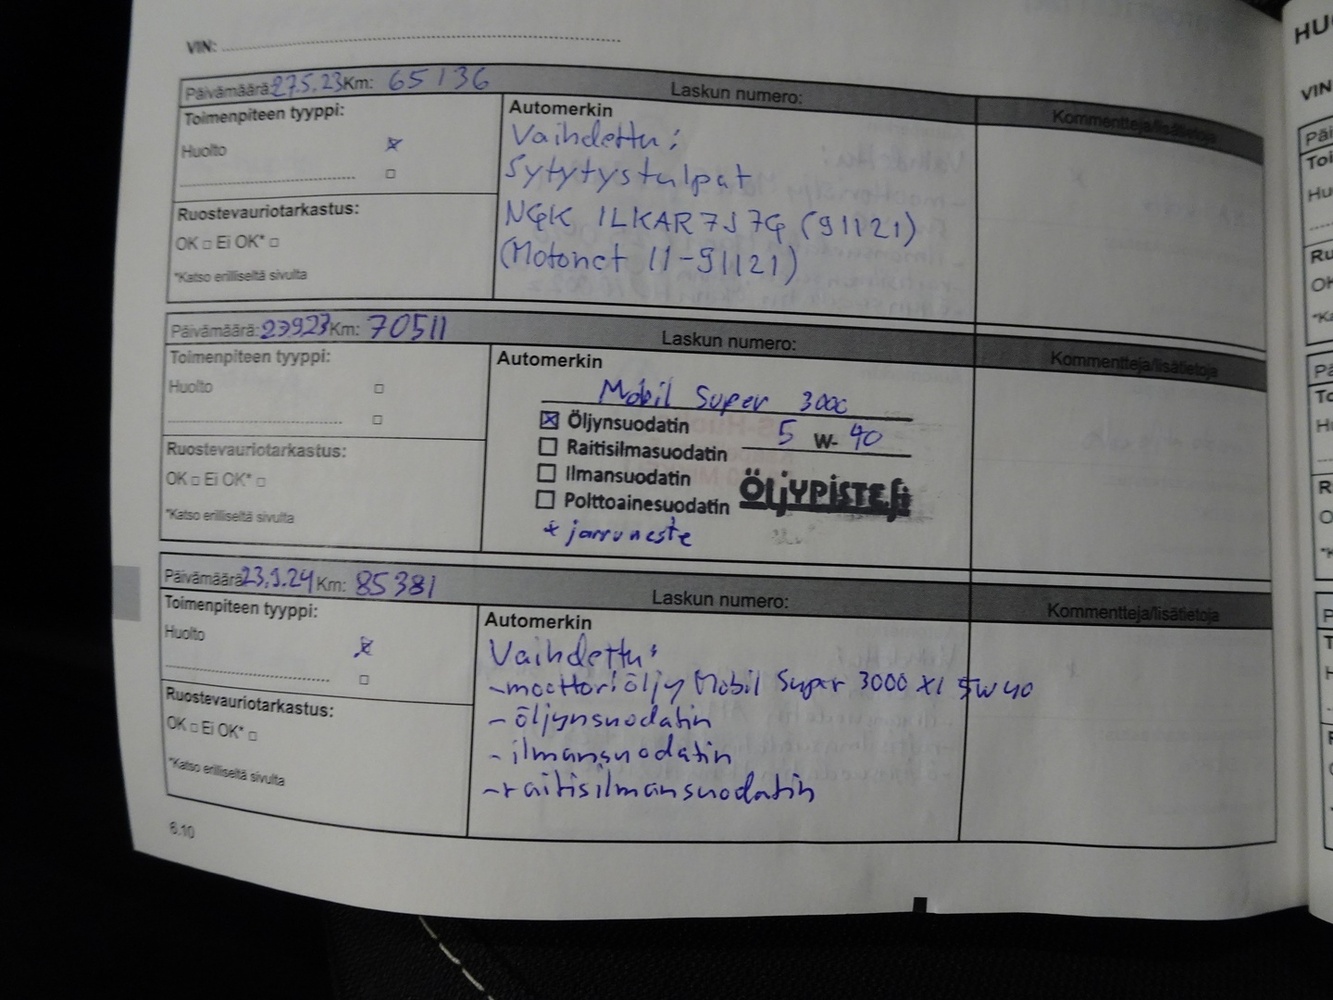 VIN:
Päivämäärä: 27.5.23 Km: 65136 Laskun numero:
Toimenpiteen tyyppi:
Huolto
Ruostevauriotarkastus:
OK □ Ei OK* □
*Katso erilliseltä sivulta
Automerkin
Vaihdettu:
Sytytystulpat
NGK ILKAR7J7G (91121)
(Motonet 11-91121)
Kommentteja/lisätietoja
Päivämäärä: 27923 Km: 70511 Laskun numero:
Toimenpiteen tyyppi:
Huolto □
□
Ruostevauriotarkastus:
OK □ Ei OK* □
*Katso erilliseltä sivulta
Automerkin
Mobil Super 3000
☒ Öljynsuodatin 5 W- 40
☐ Raitisilmasuodatin
☐ Ilmansuodatin
☐ Polttoainesuodatin ÖLJYPISTE.fi
* jarruneste
Kommentteja/lisätietoja
Päivämäärä: 23.9.24 Km: 85381 Laskun numero:
Toimenpiteen tyyppi:
Huolto
Ruostevauriotarkastus:
OK □ Ei OK* □
*Katso erilliseltä sivulta
Automerkin
Vaihdettu:
-moottoriöljy Mobil Super 3000 X1 5W40
- öljynsuodatin
- ilmansuodatin
-raitisilmansuodatin
Kommentteja/lisätietoja
6.10
HU
VIN